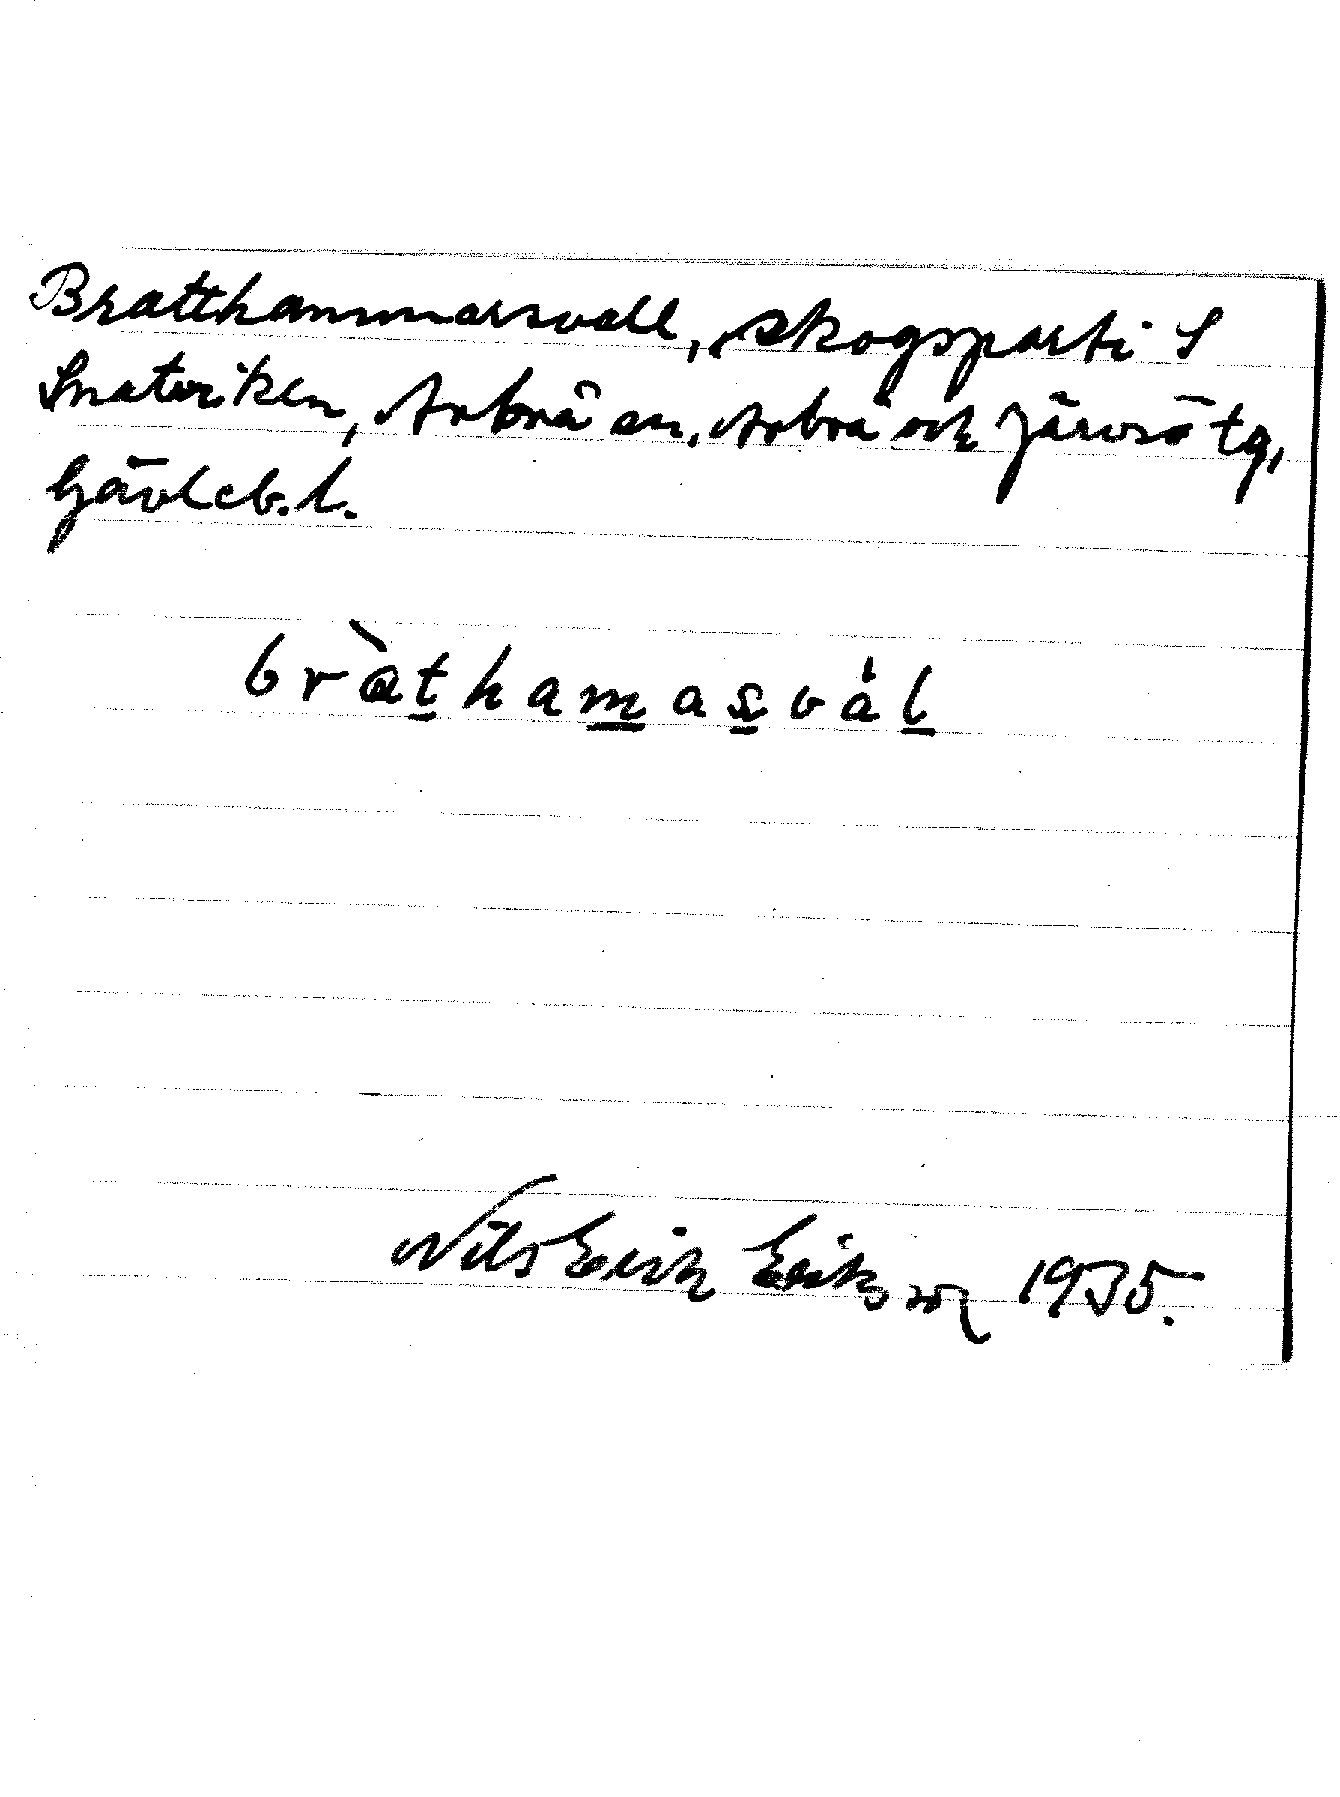 Bratthammarsvall, skogsparti S
Snateriken, Arbrå sn, Arbrå och Järvsö tg,
Gävleb. l.
bràthamasvál
Nils Erik Eriksson 1935.